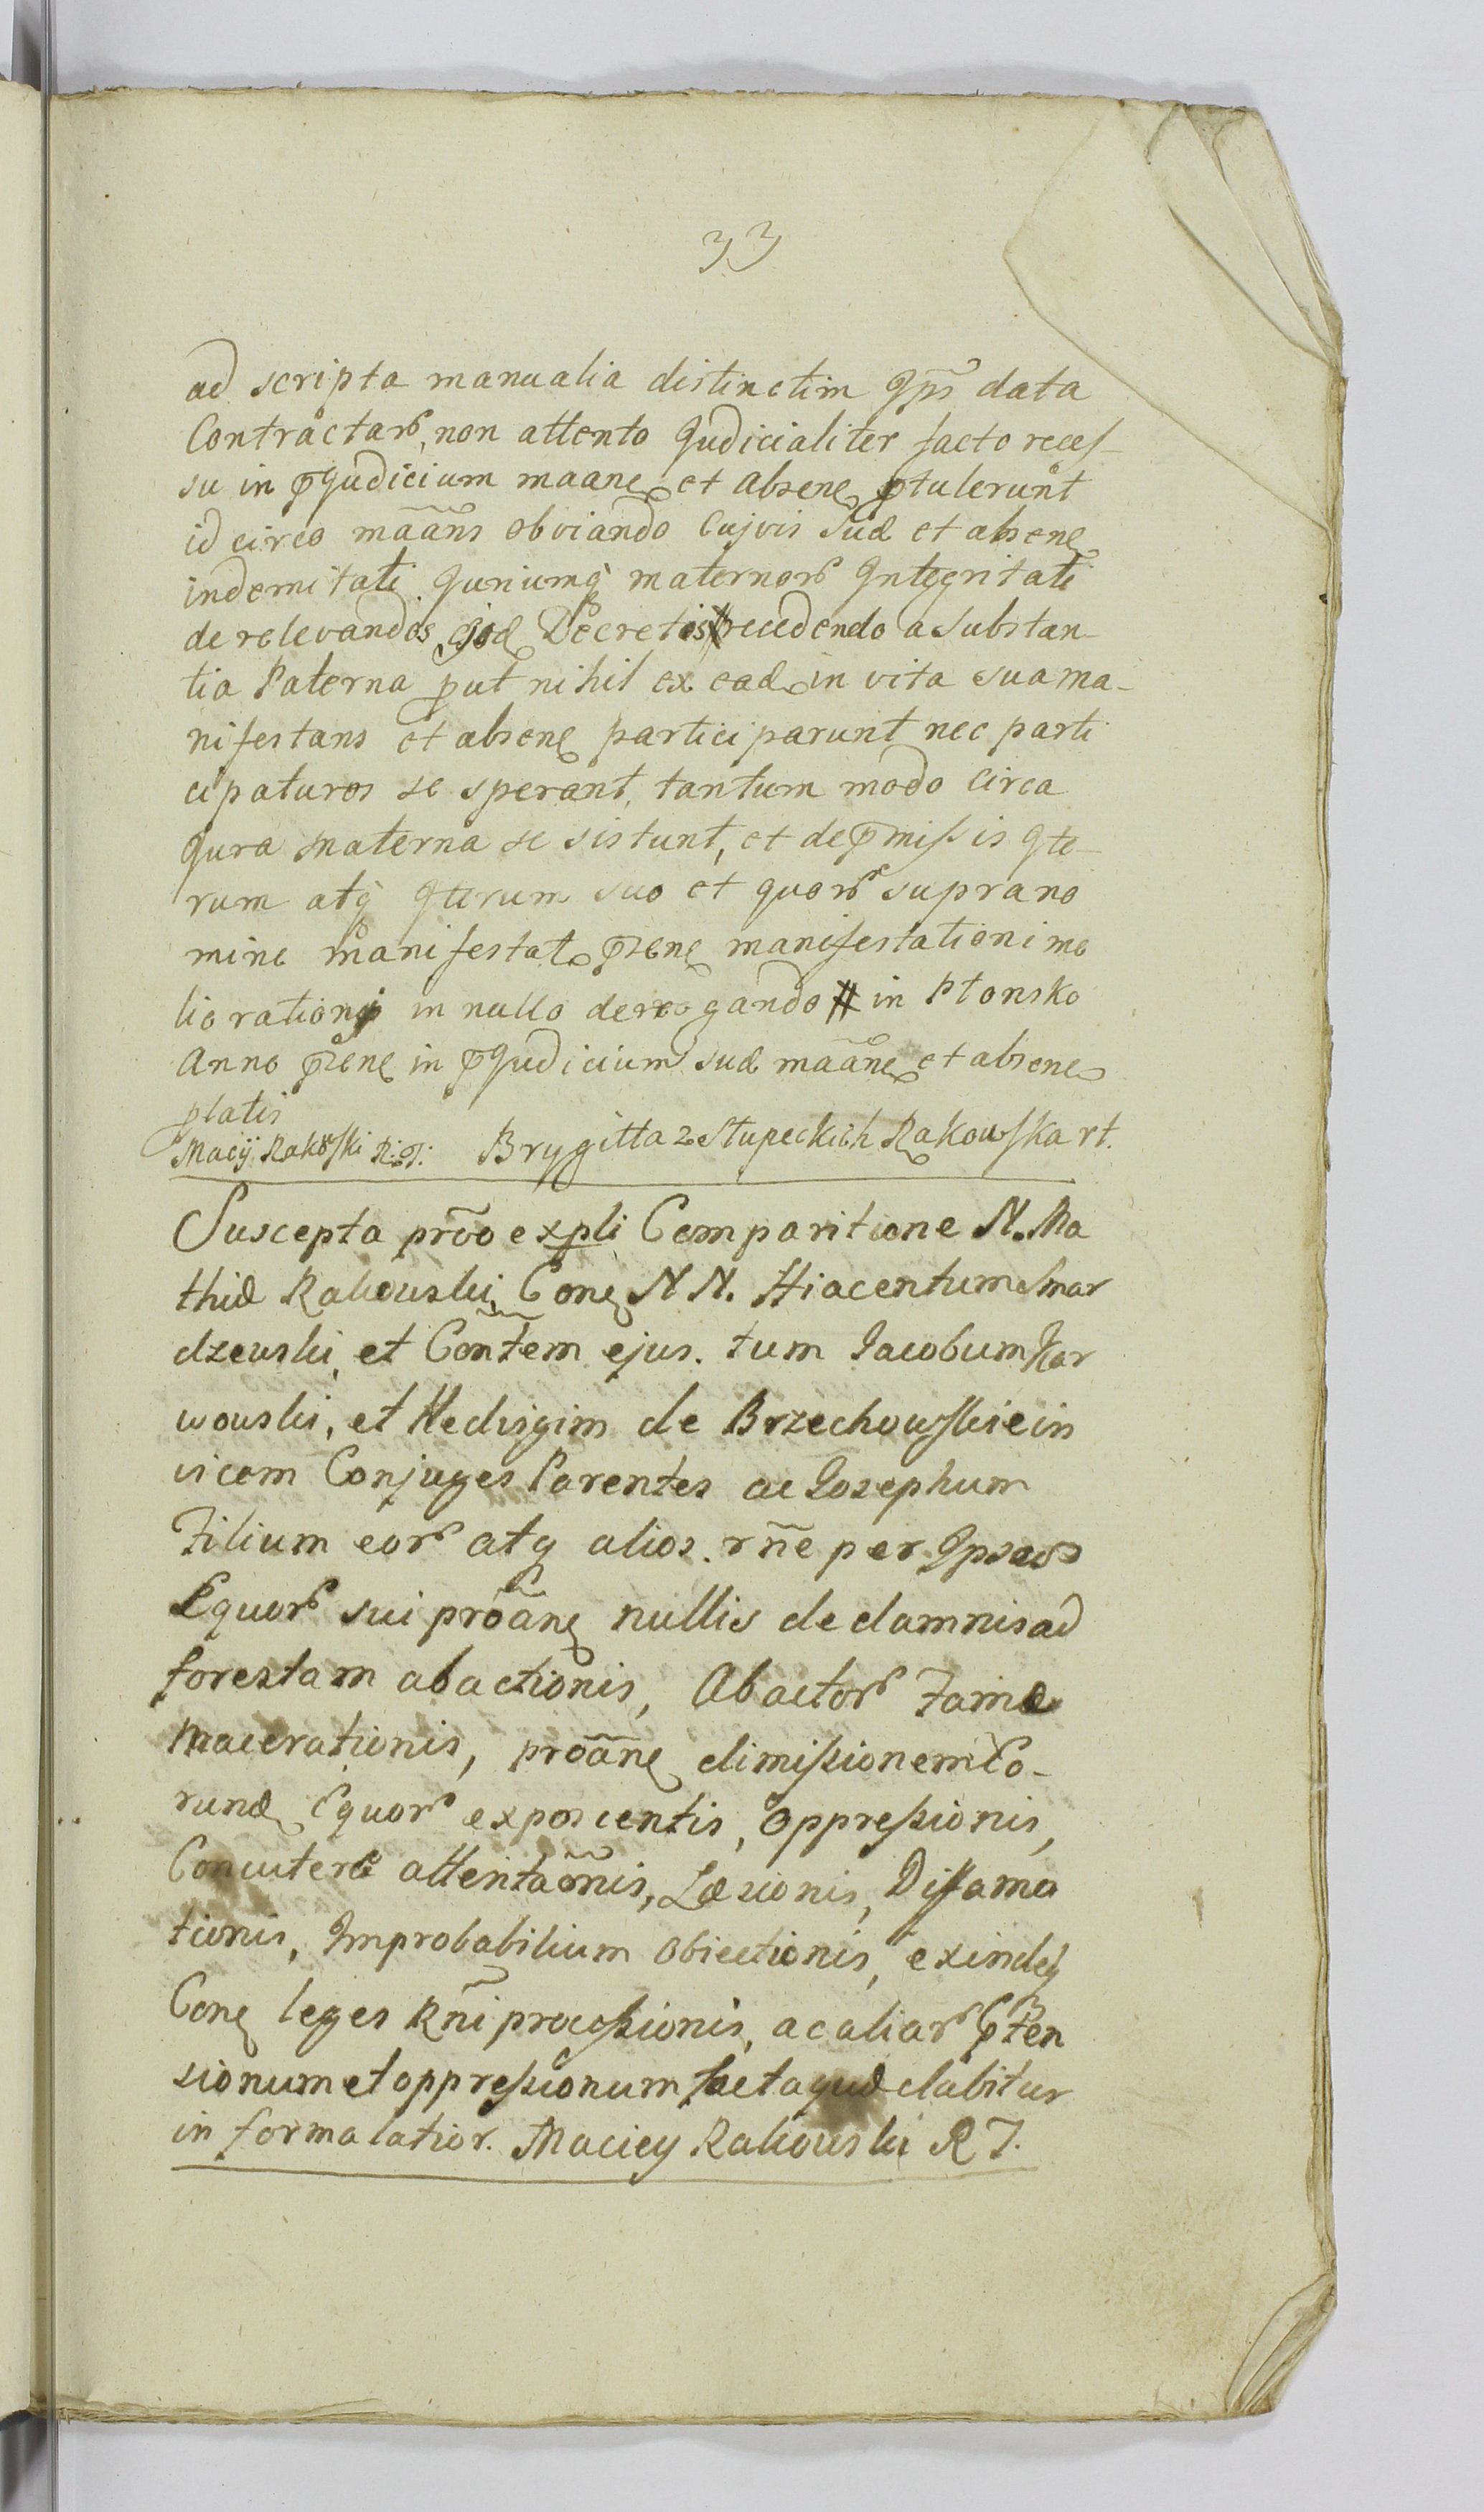 33
ad scripta manualia distinctim Ips̃ data
Contractarũ, non attento Judicialiter facto reces-
su in pJudicium maane et absene ptulerunt
id circo mããns obviando cujvis suæ et absene
indemnitati Juriumq̀ maternorũ Integritati
de relevandos ejsd Decretis recedendo a substan-
tia Paterna put nihil ex ead in vita sua ma-
nifestans et absene participarunt nec parti
cipaturos se sperant, tantum modo circa
Jura materna se sistunt, et de pmissis Ite-
rum atq̀ Iterum suo et quorũ supra no
mine manifestat pzene manifestationi me
liorationi in nullo derogando # in Płonsko
Anno pzene in pJudicium suæ mããne et absene
platis
Maciÿ Rakowski R:T: Brygitta z Słupeckich Rakowska rt.
Suscepta prõo expli Comparitione N. Ma
thiæ Rakowski, Cone N N. Hiacentum Smar
dzewski, et Coñtem ejus. tum Jacobum Kar
wowski, et Hedvigim de Brzechowskie in
vicem Conjuges Parentes ac Josephum
Filium eorũ atq alios. rñe per Ipsos
Equorũ sui prõane nullis de damnis ad
forestam abactionis, Abactorũ Famæ
macerationis, prõãne dimissionem Eo-
rund Equorũ exposcentis, oppressionis,
attentaõnis, Læsionis, Diffama
tionis, Improbabilium obiectionis, exindeq
Cone leges Rñi processionis, ac aliarũ pten
sionum et oppressionum facta quæ dabitur
in forma latior. Maciey Rakowski R T.